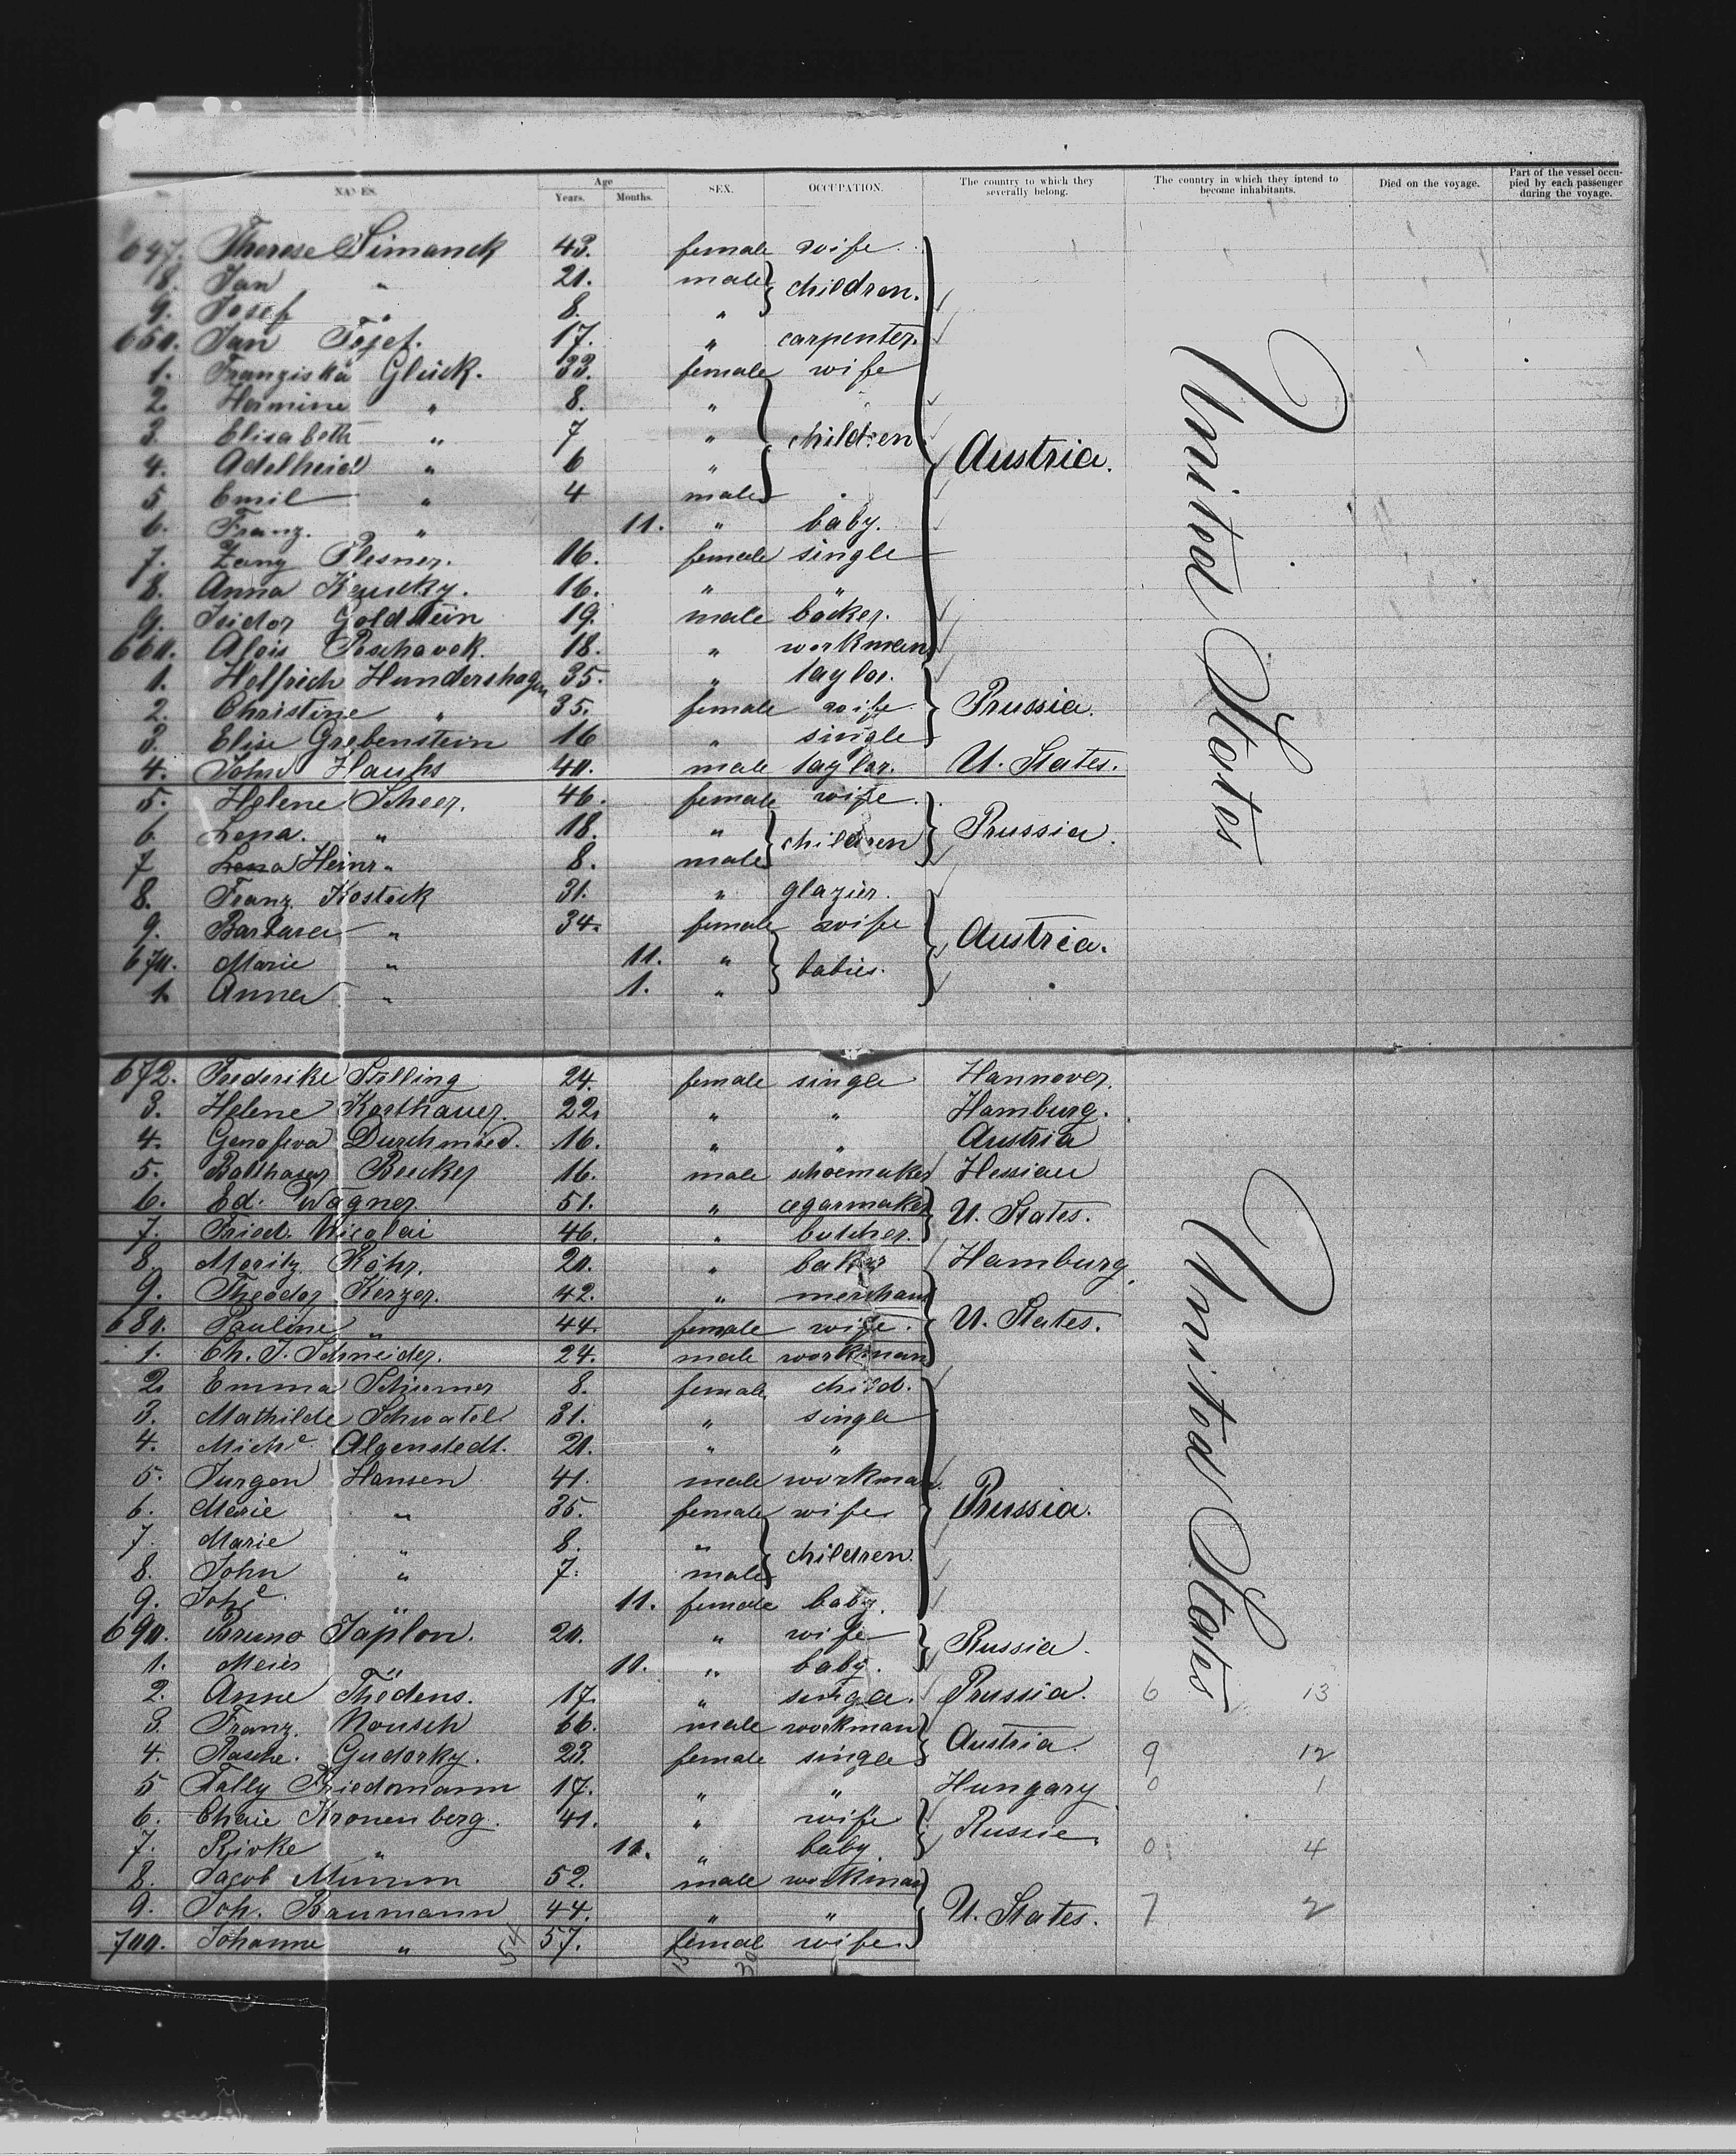 NAMES. Age SEX. OCCUPATION. The country to which they severally belong. The country in which they intend to become inhabitants. Died on the voyage. Part of the vessel occupied by each passenger during the voyage.
Years. Months.
647. Therese Simanek 43. female wife.
8. Jan " 21. male children.
9. Josef " 8. "
650. Jan 17. " carpenter.
1. Franziska Glück. 33. female wife
2. Hermine " 8. "
3. Elisabeth " 7 " children
4. Adelheid " 6 " Austria.
5 Emil " 4 male
6. Franz. " 11. " baby.
7. Plesner. 16. female single
8. Anna 16. " "
9. Isidor Goldstein 19. male bäcker.
660. Alois 18. " workman
1. Helfrich Hundershagen 35. " taylor.
2. Christine " 35. female wife Prussia.
3. Elise Grebenstein 16 " single
4. John 40. male taylor. U. States.
5. Helene Scheer. 46. female wife.
6 Lena. " 18. " children Prussia.
7 Lena Heinr " 8. male
8. Franz Kostick 31. " glazier.
9. Barbara " 34. female wife Austria.
670. Marie " 11. " babies.
1. Anna " 1. "
672. Frederike Stelling 24. female single Hannover.
3. Helene Korthauer. 22. " " Hamburg.
4. Genofeva Durchmied. 16. " " Austria
5. Balthasar Becker 16. male shoemaker Hessian
6. Ed. Wagner 51. " cegarmaker U. States.
7. Fried. Nicolai 46. " butcher.
8. Moritz Röhr. 20. " baker Hamburg.
9. Theodor Kerzer. 42. " merchant
680. Pauline " 44. female wife. U. States.
1. Ch. J. Schneider. 24. male workman
2. Emma 8. female child.
3. Mathilde 31. " single
4. Michᵉ Algenstedt. 20. " "
5. Jurgen Hansen 41. male workman.
6. Marie " 35. female wife Prussia.
7. Marie " 8. " children.
8. John " 7. male
9. Johᵉ " 11. female baby.
690. Bruno Taplon. 20. " wife Russia.
1. " 11. " baby.
2. Anne Thödens. 17. " single. Prussia. 6 13
3. Franz. 66. male workman Austria.
4. Rasche. Gudorky. 23. female single 9 12
5 Tally Friedmann 17. " " Hungary 0 1
6. Chaie Kronenberg. 41. " wife Russia.
7. Rivke " 11. " baby. 0 4
8. Jacob Mumm 52. male workman
9. Joh. Baumann 44. " " U. States. 7 2
700. Johanne " 57. female wife.
54 15 30
United States
United States